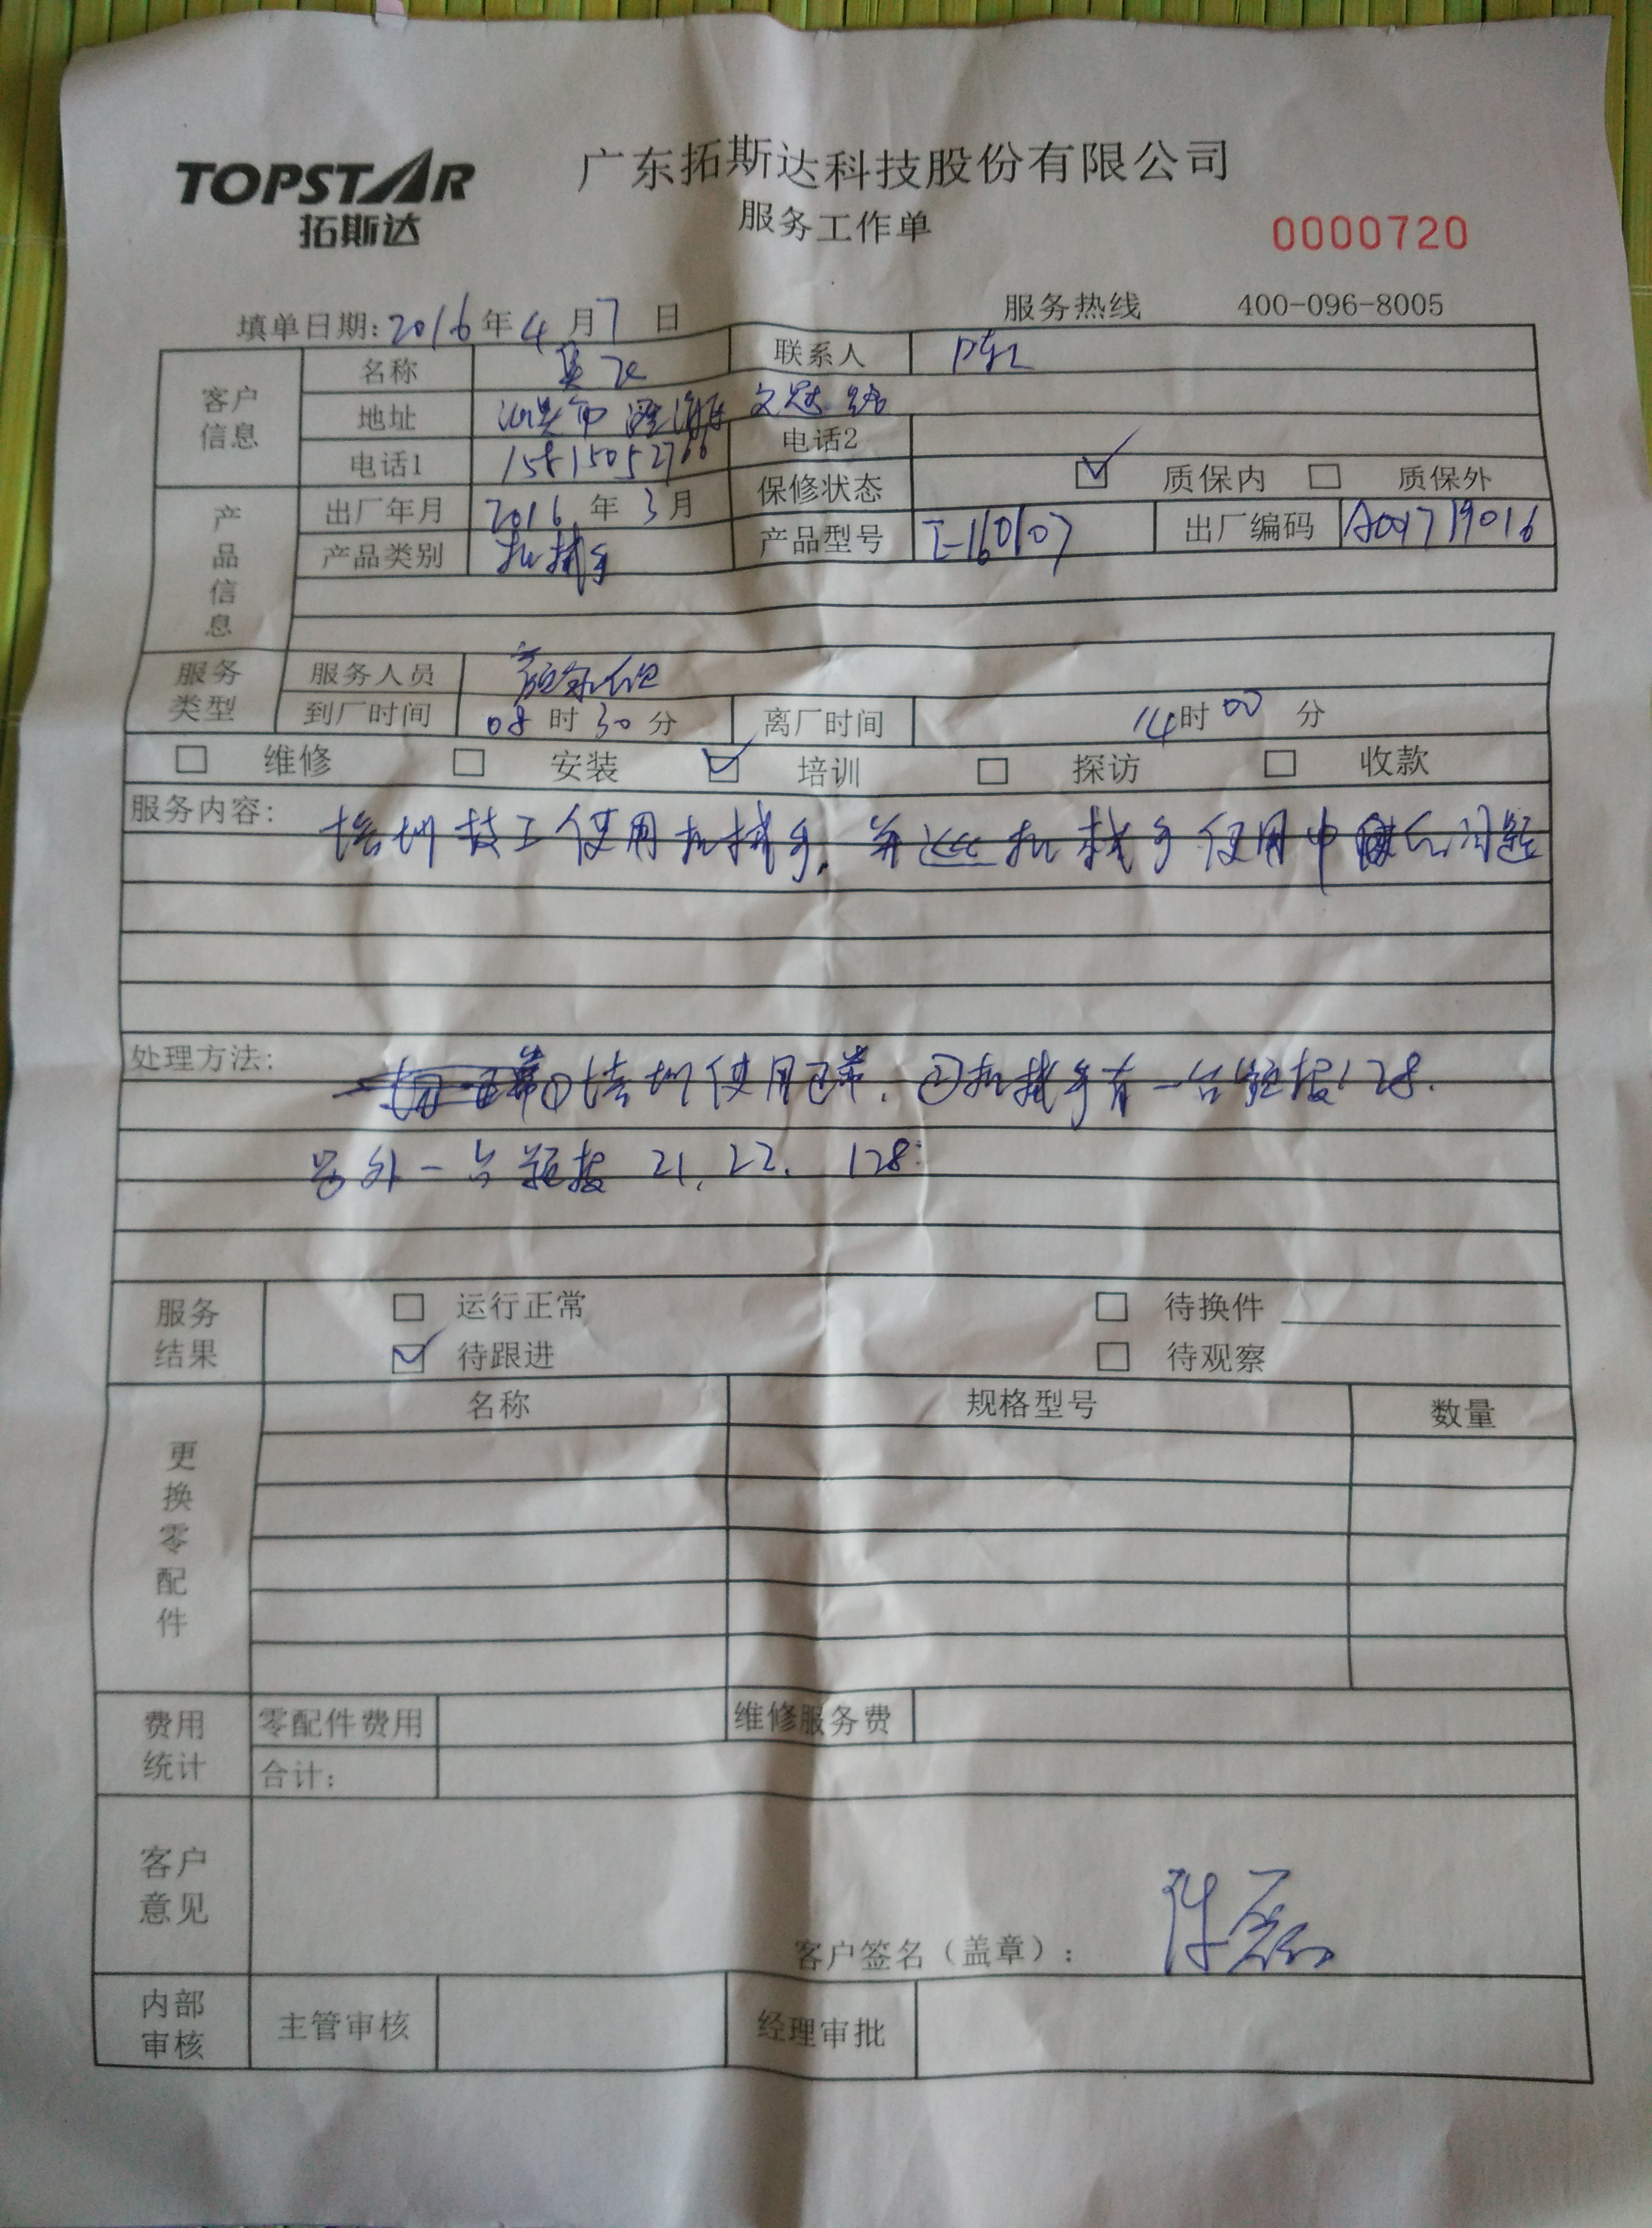 TOPSTAR
拓斯达
广东拓斯达科技股份有限公司
服务工作单
0000720
填单日期:2016年4月7日
服务热线 400-096-8005
客户信息
名称
联系人
地址 文冠路
电话1 15815052766
电话2
产品信息
出厂年月 2016年3月
保修状态 质保内 质保外
产品类别 机械手
产品型号 I-160107
出厂编码 A001719016
服务类型
服务人员
到厂时间 08时30分
离厂时间 14时00分
维修 安装 培训 探访 收款
服务内容:
培训技工使用机械手,并 机械手使用中 问题
处理方法:
①培训使用正常.②机械手有一台 报128.
另外一台 报 21,22. 128.
服务结果
运行正常 待换件
待跟进 待观察
更换零配件
名称 规格型号 数量
费用统计
零配件费用 维修服务费
合计:
客户意见
客户签名(盖章): 陈磊
内部审核
主管审核 经理审批